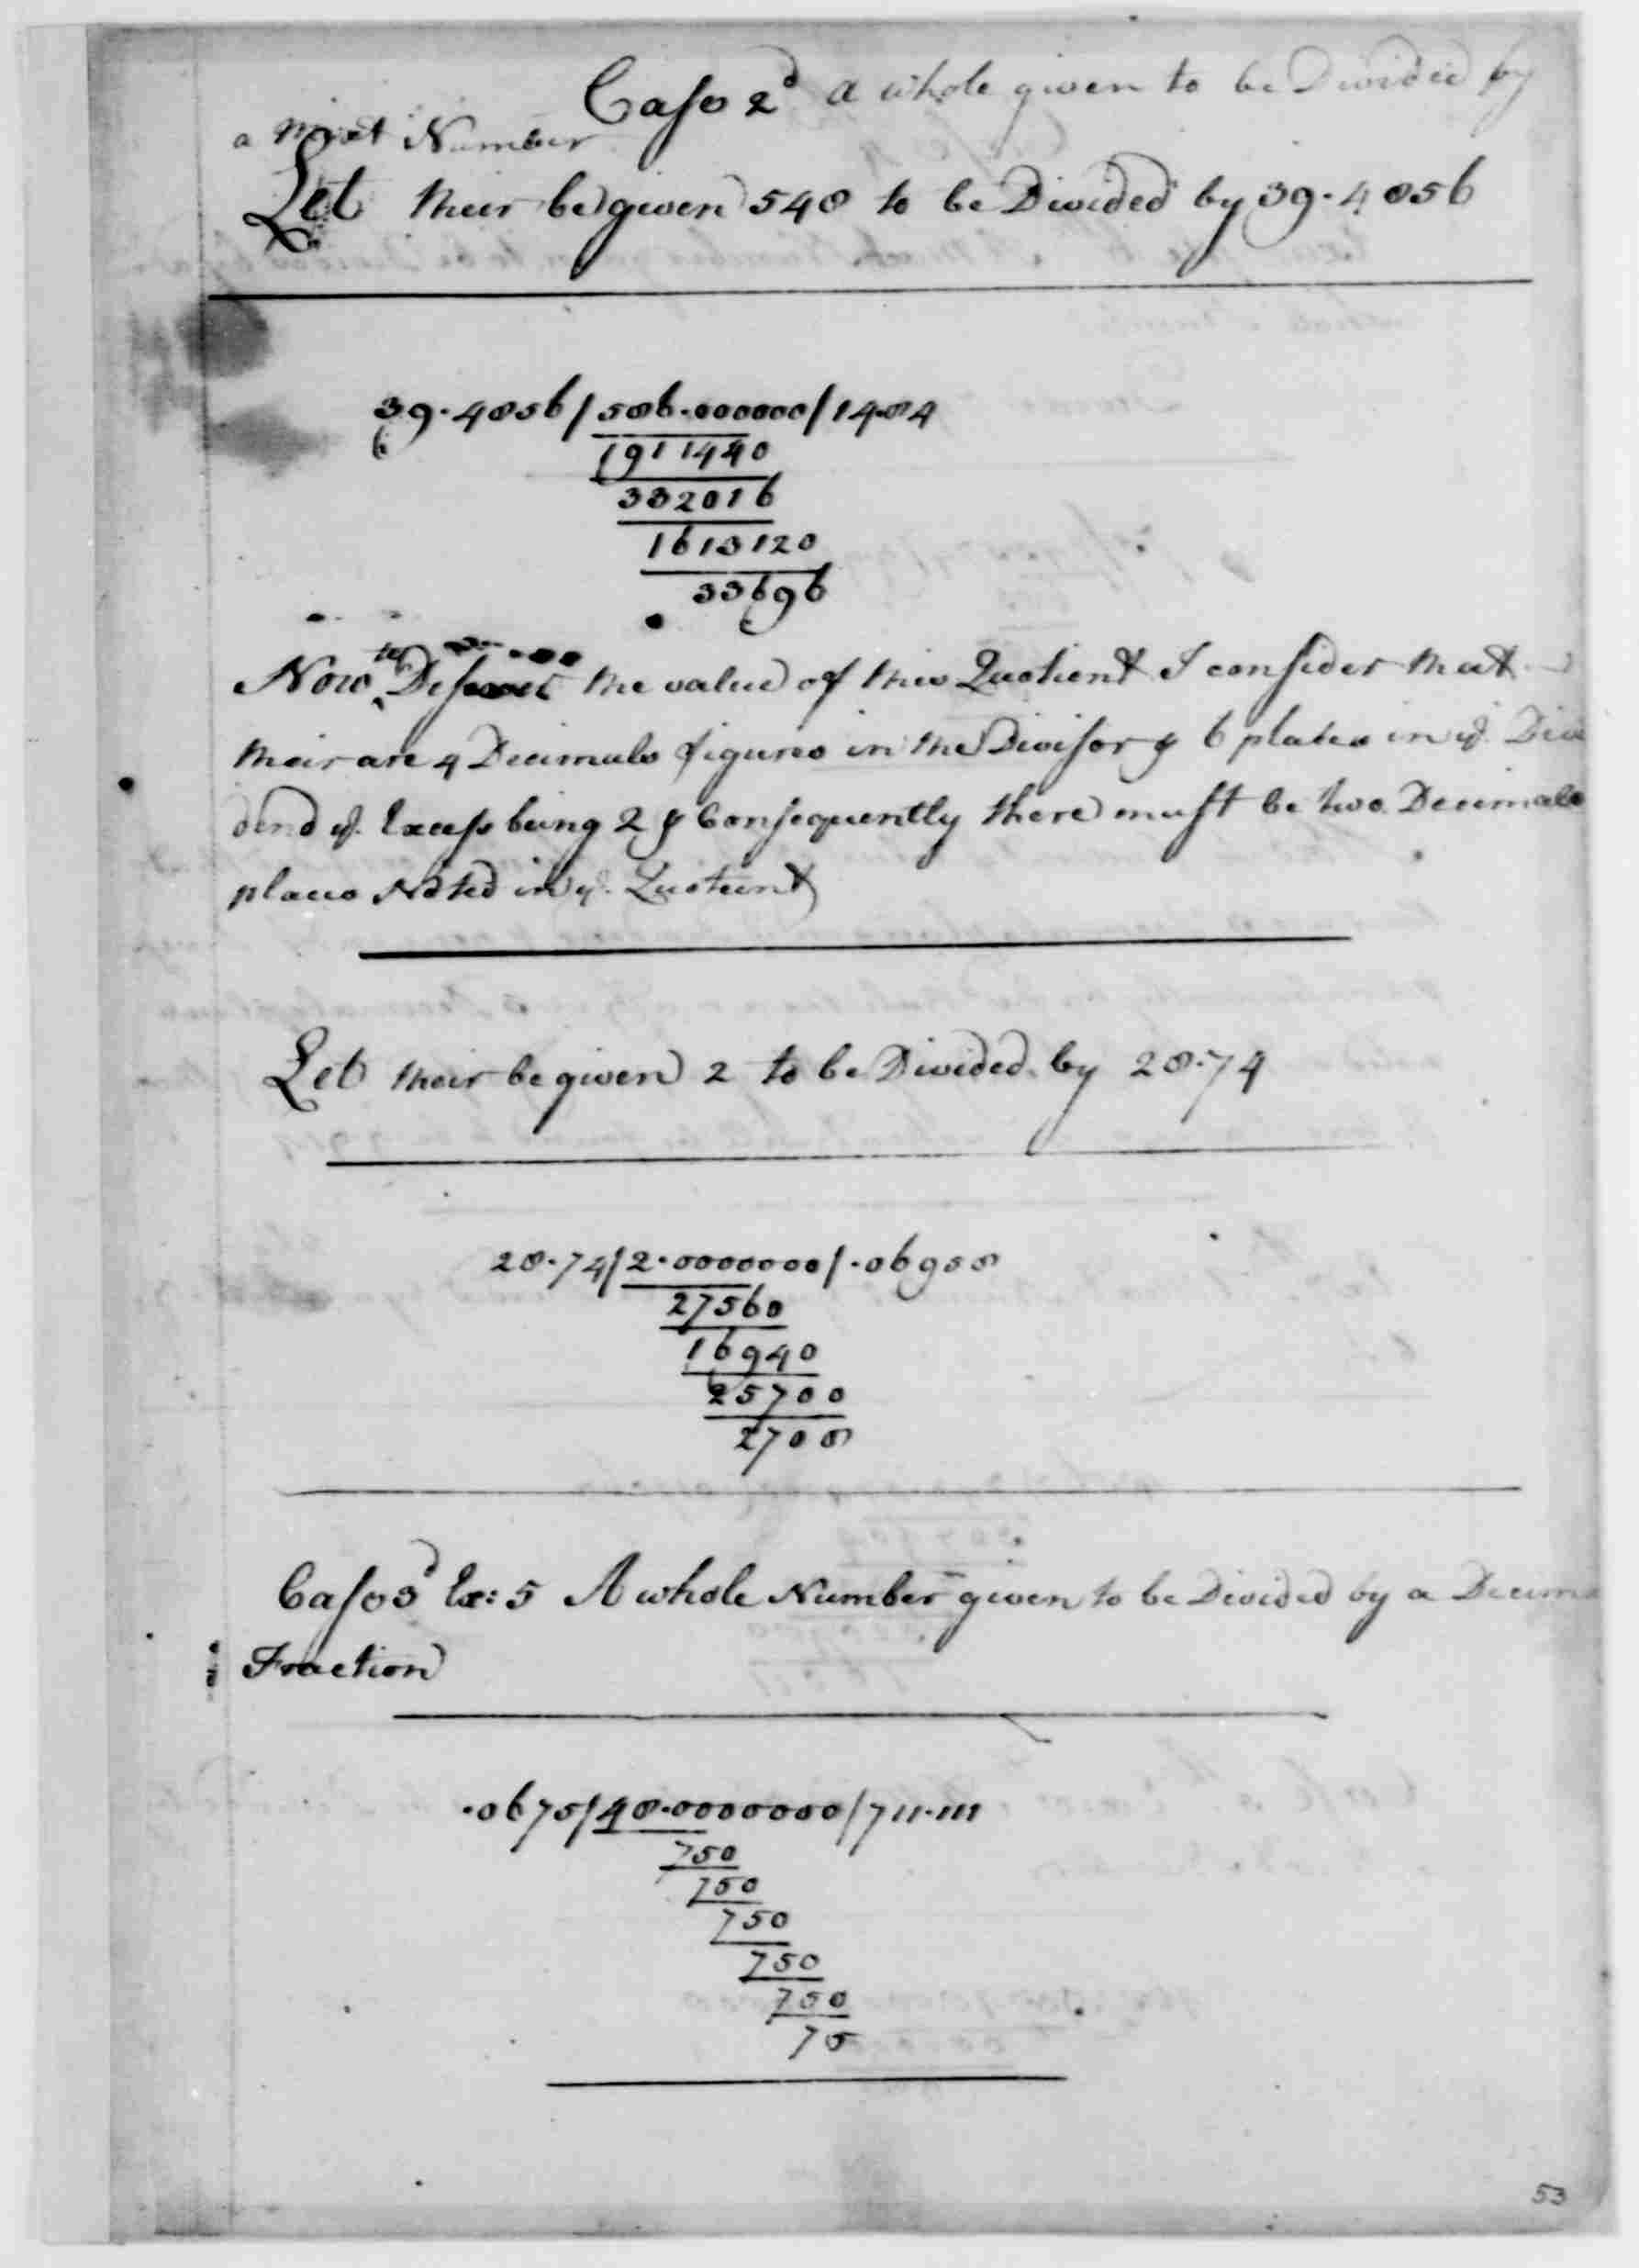 Case 2d a whole given to be Divided by
a Mixt Number
Let their be given 548 to be Divided by 39.4856
39.4856/586.000000/14.84
6
1911440
332016
1613120
33696
Now to the value of this Quotient I consider that
their are 4 Decimals figures in the Divisor & 6 places in ye. Divi
dend ye. Excess being 2 & Consequently there must be two Decimals
places Noted in ye. Quotient
Let their be given 2 to be Divided by 28.74
28.74/2.0000000/.06958
27560
16940
25700
2708
Case 3d Ex: 5 A whole Number given to be Divided by a Decima
Fraction
.0675/48.0000000/711.111
750
750
750
750
750
75
53